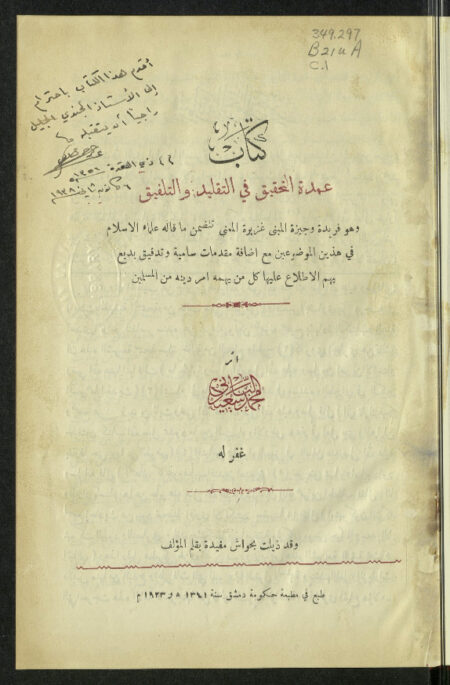 349.297
B21uA
C.1
أقدم هذا الكتاب باحترام
إلى الأستاذ الجندي الجليل
راجياً أن يتقبله
كتاب
عمدة التحقيق في التقليد والتلفيق
وهو فريدة وجيزة المبنى غزيرة المعنى تتضمن ما قاله علماء الاسلام
في هذين الموضوعين مع اضافة مقدمات سامية وتدقيق بديع
يهم الاطلاع عليها كل من يهمه امر دينه من المسلمين
اثر
محمد سعيد الباني
غفر له
وقد ذيلت بحواش مفيدة بقلم المؤلف
طبع في مطبعة حكومة دمشق سنة ١٣٤١ ه و ١٩٢٣ م